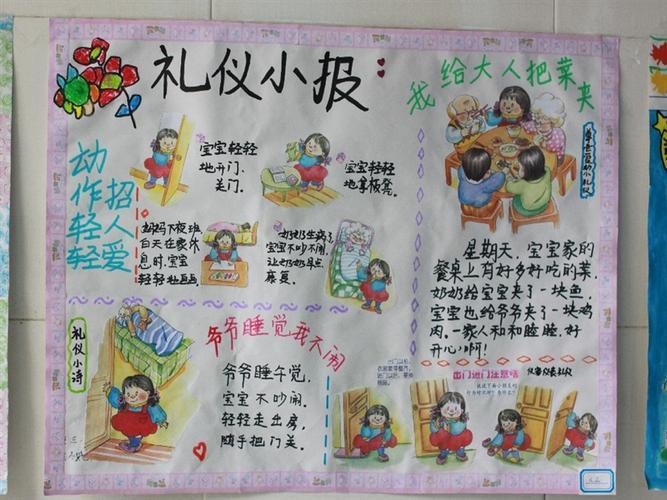 礼仪小报
我给大人把菜夹
尊长爱幼小礼仪
动
作招
轻人
轻爱
宝宝轻轻
地开门、
关门。
宝宝轻轻
地拿板凳。
妈妈下夜班
白天在家休
息时,宝宝
轻轻地画画
奶奶生病了
宝宝不吵不闹,
让奶奶早点
康复。
星期天,宝宝家的
餐桌上有好多好吃的菜。
奶奶给宝宝夹了一块鱼,
宝宝也给爷爷夹了一块鸡
肉。一家人和和睦睦,好
开心啊!
礼仪小诗
爷爷睡觉我不闹
爷爷睡午觉,
宝宝不吵闹。
轻轻走出房,
随手把门关。
出门进门注意啥